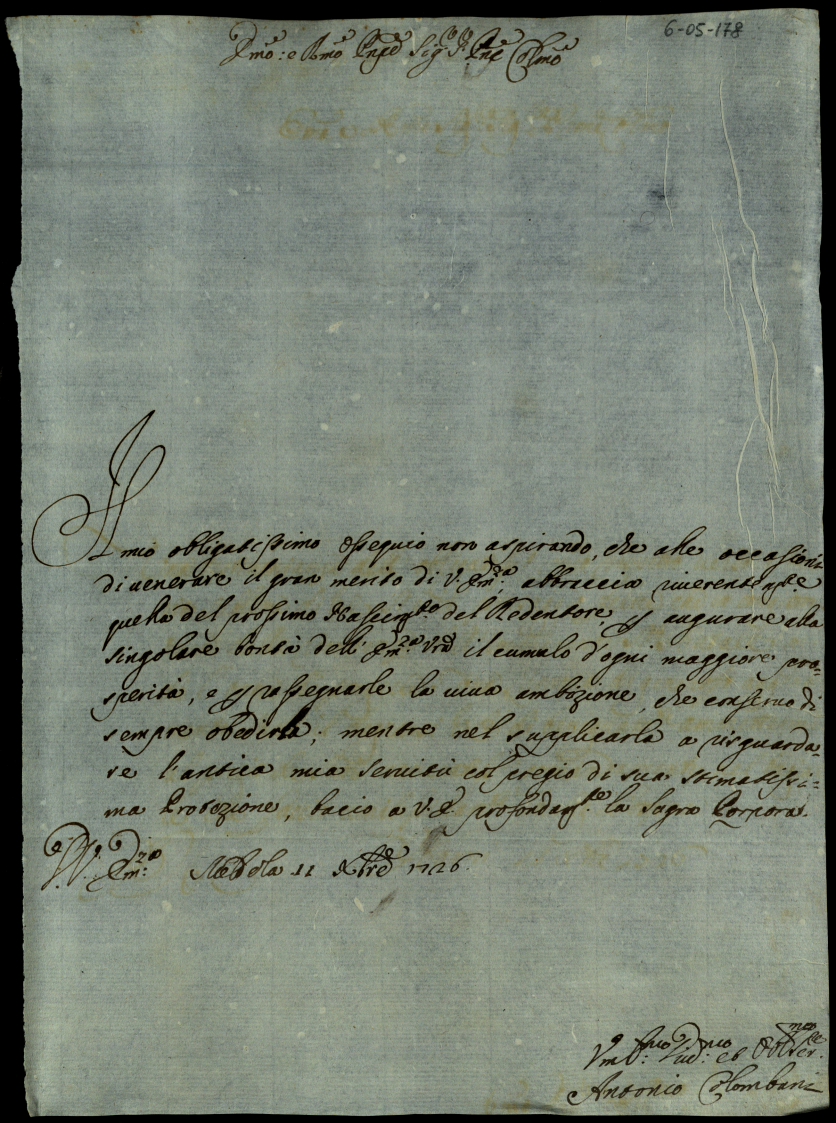 6-05-178
Emo: e Rmo Pnpe Sig.r Pne Colmo
Il mio obligatissimo ossequio non aspirando, che alle occasioni
di uenerare il gran merito di V. Em.za abbraccia riuerentemte
quella del prossimo Nascimto del Redentore, p augurare alla
singolare bontà dell' Em.za Vra il cumulo d'ogni maggiore pro=
sperità, e p rassegnarle la uiua ambizione, che conseruo di
sempre obedirla; mentre nel supplicarla a risguarda=
re l'antica mia seruitù col pregio di sua stimatissi=
ma Protezione, bacio a V. E. profondamte la Sagra Porpora.
D. V. Em.za 11 Xbre 1726.
Vm.o Diu.mo et Obl. Ser.
Antonio Colombani